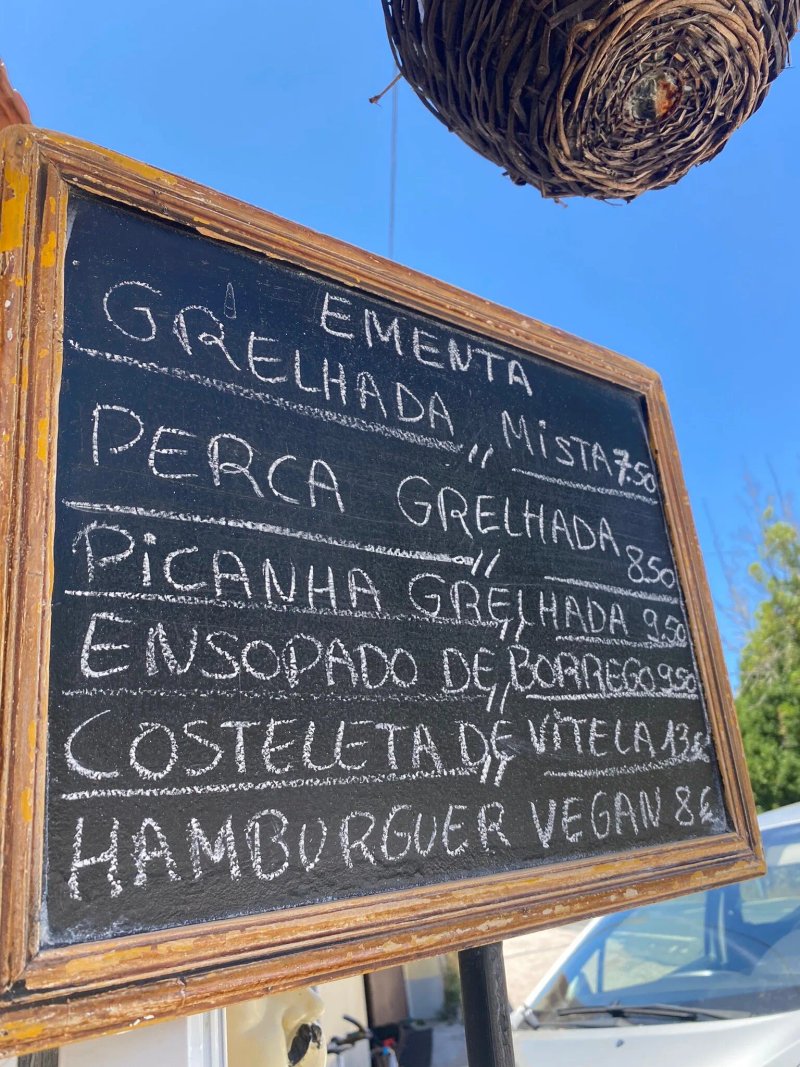 EMENTA
GRELHADA MISTA 7.50
PERCA GRELHADA 8.50
PICANHA GRELHADA 9.50
ENSOPADO DE BORREGO 9.50
COSTELETA DE VITELA 13€
HAMBURGUER VEGAN 8€